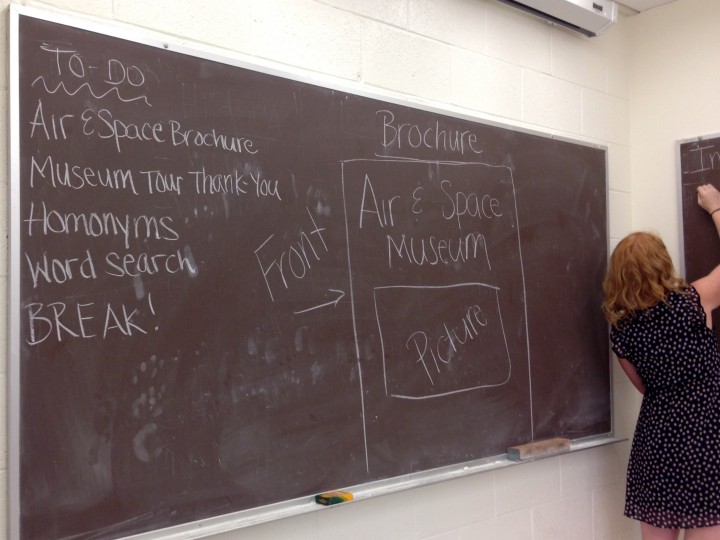 TO-DO
Air & Space Brochure
Museum Tour Thank-You
Homonyms
Word search
BREAK!
Front
Brochure
Air & Space
Museum
Picture